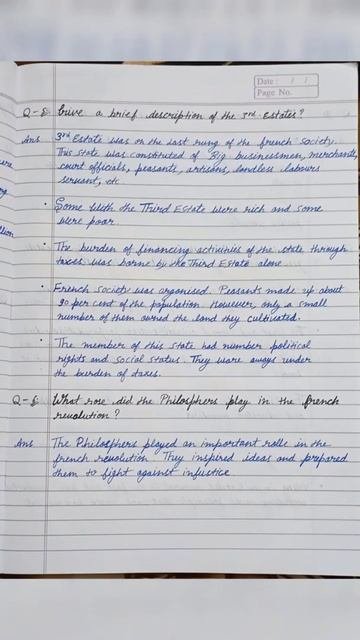 Date : / /
Page No.
Q-5 Give a brief description of the 3rd Estates?
Ans 3rd Estate was on the last rung of the french society.
This state was constituted of Big businessmen, merchants,
court officials, peasants, artisons, landless labours
servant, etc
• Some With the Third Estate were rich and some
were poor
• The burden of financing activities of the state through
taxes was borne by the Third Estate alone.
• French society was organised. Peasants made up about
90 per cent of the population. However, only a small
number of them owned the land they cultivated.
• The member of this state had number political
rights and social status. They were aways under
the burden of taxes.
Q-6 What role did the Philosphers play in the french
revolution?
Ans The Philosphers played an important rolle in the
french revolution They inspired ideas and prepared
them to fight against injustice